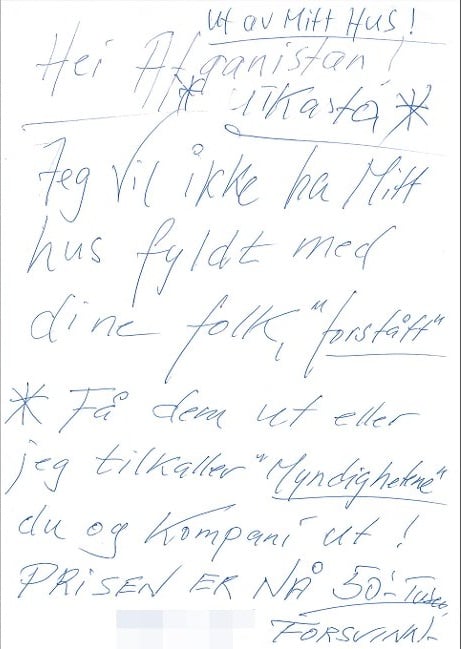 ut av Mitt Hus!
Hei Afganistan!
* Itkasta *
Jeg vil ikke ha Mitt
hus fyldt med
dine folk, "forstått"
* Få dem ut eller
jeg tilkaller "Myndighetene"
du og Kompani ut!
PRISEN ER NÅ 50'- Tusen,
FORSVINN-